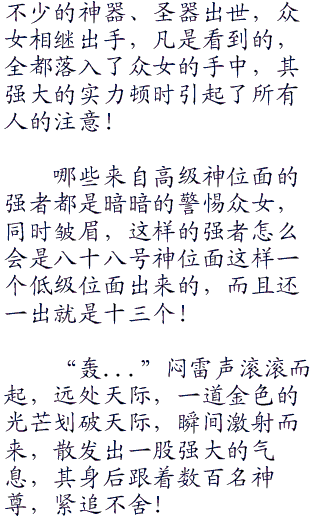 不少的神器、圣器出世，众
女相继出手，凡是看到的，
全都落入了众女的手中，其
强大的实力顿时引起了所有
人的注意！
哪些来自高级神位面的
强者都是暗暗的警惕众女，
同时皱眉，这样的强者怎么
会是八十八号神位面这样一
个低级位面出来的，而且还
一出就是十三个！
“轰...”闷雷声滚滚而
起，远处天际，一道金色的
光芒划破天际，瞬间激射而
来，散发出一股强大的气
息，其身后跟着数百名神
尊，紧追不舍！